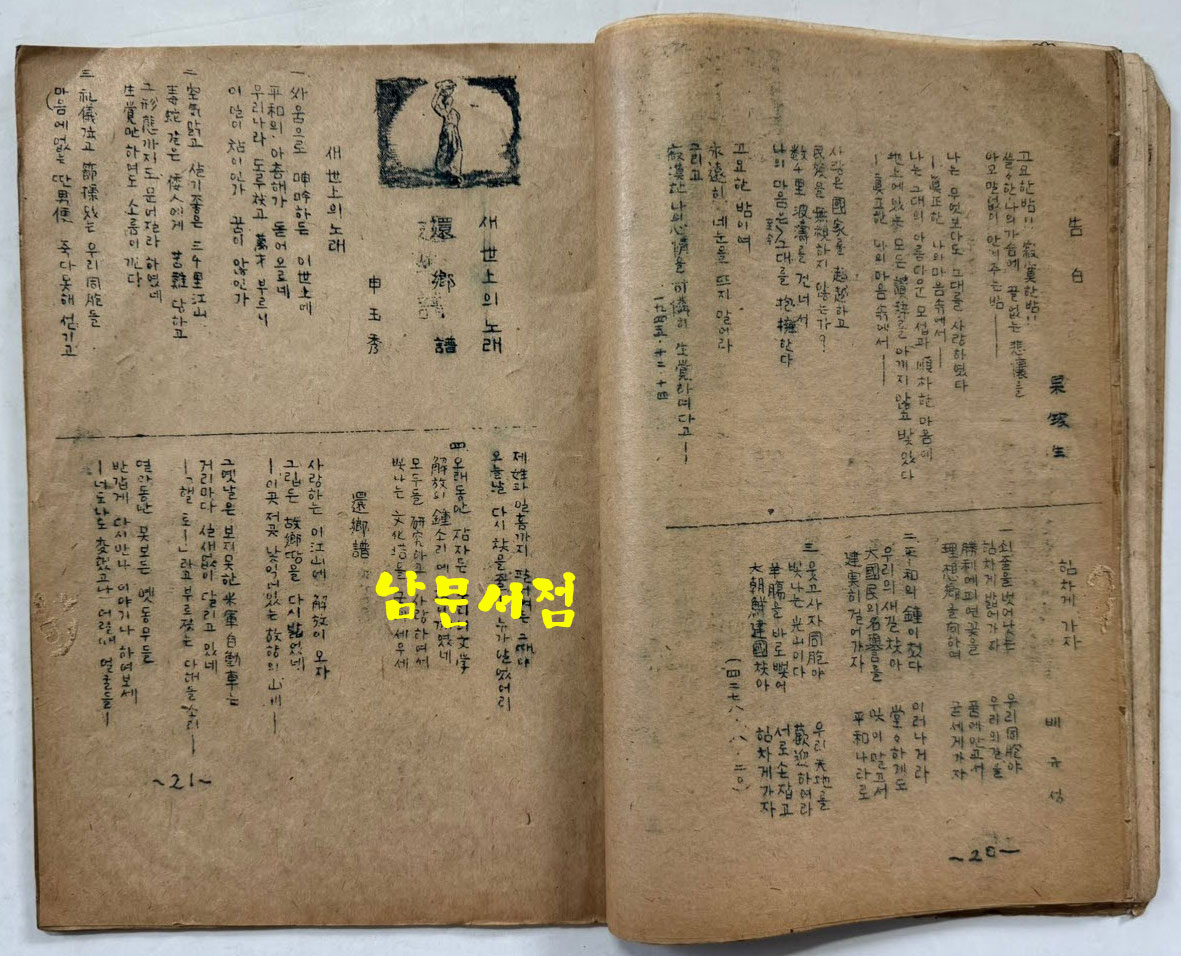 告白
吴琰生
고요한밤!! 寂寞한밤!!
쓸쓸한나의가슴에 끝없는 悲懷를
아모말없이 안겨주는밤——
나는 무엇보다도 그대를 사랑하였다
——眞正한 나의마음속에서——
나는 그대의 아름다운 모습과 順하한 마음에
地上에있는 모든 讚辞를 아끼지않고 받았다
——眞正한 나의마음속에서——
사랑은 國家를 超越하고
民族을 無視하지 않는가?
数千里 波濤를 건너서
나의 마음은 그대를 抱擁한다
고요한 밤이여
永遠히 네눈을 뜨지말어라
그리고
寂漠한나의心情을 可憐히 生覚하며다고——
一九四五·十二·十四
힘차게 가자
배규성
一 쇠줄을벗어났는 우리同胞야
힘차게 밟어가자 우리의길을
勝利에피연꽃을 품에안고서
理想郷을向하여 굳세게가자
二 平和의 鐘이쳤다 이러나거라
우리의새길찾아 堂々하게도
大國民의名譽를 잊이말고서
建実히걸어가자 平和나라로
三 웃고사자同胞아 우리天地를
빛나는光山이다 歡迎하여라
羊腸을바로뻗어 서로손잡고
大朝鮮建國찾아 힘차게가자
(四二七八·八·二〇)
~20~
새世上의노래
還鄉譜
申玉秀
새世上의노래
一 싸움으로 呻吟하든 이世上에
平和의 아츰해가 돋어으르네
우리나라 독루찾고 萬才부르니
이일이 참이인가 꿈이않인가
二 空気맑고 살기좋은 三千里江山
毒蛇같은 倭人에게 苦難당하고
그形態까지도 문어질라하였네
生覚만하여도 소름이낀다
三 礼儀있고 節操있는 우리同胞들
마음에없는 딴男便 죽다못해섬기고
제姓과일홈까지
오늘날 다시찾을줄 누가알었어리
四 오래동안 잠자든 文学
解放의 鐘소리에
모두들 研究하고 사랑하며서
빛나는 文化塔을 세우세
還鄉譜
사랑하는 이江山에 解放이오자
그립든 故鄉땅을 다시밟었네
——이곳저곳 낯익어있는 故鄉의山川——
그옛날은 보지못한 米軍自動車는
거리마다 살새없이 달리고있네
——「헬로—」라고부르짖는 그대들소리——
멫안동안 못보든 옛동무들
반갑게 다시만나 이야기나하여보세
——너도나도 変했고나 어릴때얼굴들——
~21~
남문서점